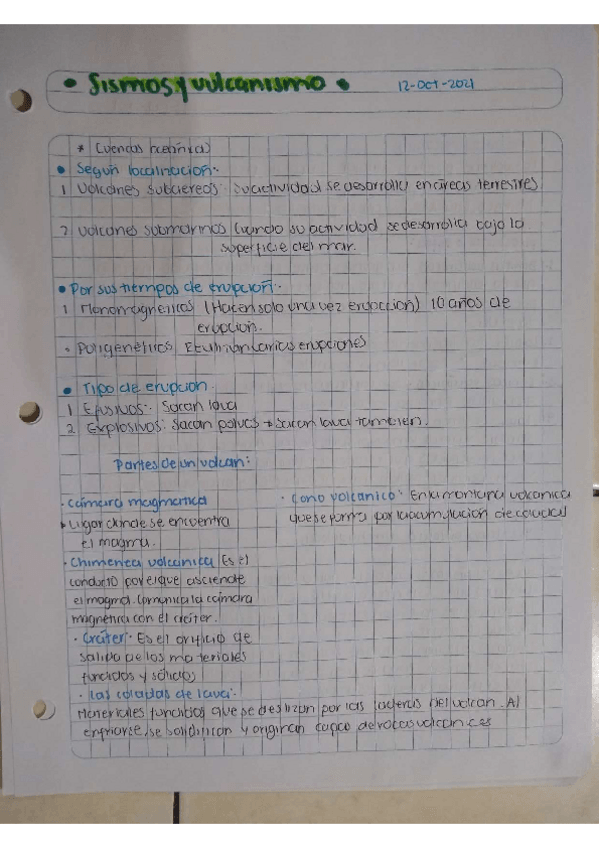 • Sismos y vulcanismo •
12-Oct-2021
* (Cuencas oceánica)
• Según localinación:
1 Volcanes subaereos: su actividad se desarrolla en áreas terrestres
2 Volcanes submarinos Cuando su actividad se desarrolla bajo la
superficie del mar.
• Por sus tiempos de erupción:
1 (Hacen solo una vez erupcción) 10 años de
erupcion.
• Poligenéticos varias erupciones
• Tipo de erupcion.
1 Efusivos: Sacan lava
2 Explosivos: Sacan polvos + sacan lava también.
Partes de un volcan:
• Cámara magmatica
Lugar donde se encuentra
el magma.
• Chimenea volcanica (Es el)
conducto por el que asciende
el magma. Comunica la cámara
magnética con el cráter.
• Cráter: Es el orificio de
salida de los materiales
fundidos y sólidos
• Las coladas de lava:
Materiales fundidos que se deslizan por las laderas del volcan. Al
enfriarse, se solidifican y originan capas de rocas volcanices
• Cono volcanico: montaña volcanica
que se forma por la acumulacion de coladas